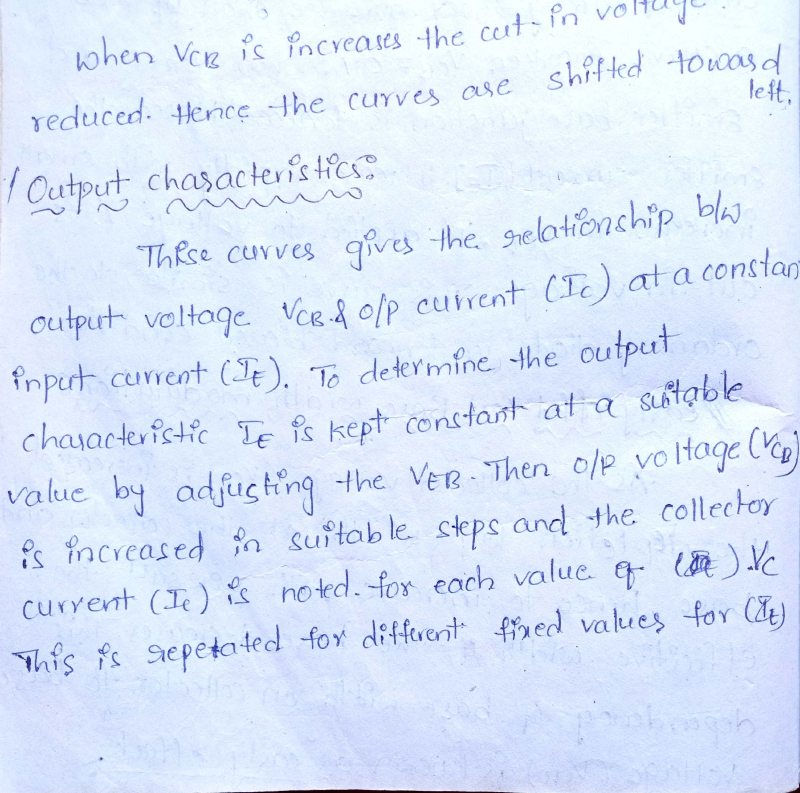 when VCB is increases the cut-in voltage
reduced. Hence the curves are shifted toward
left.
Output characteristics:
These curves gives the relationship b/w
output voltage VCB & o/p current (Ic) at a constan
input current (IE). To determine the output
characteristic IE is kept constant at a suitable
value by adjusting the VEB. Then o/p voltage (VCB)
is increased in suitable steps and the collector
current (Ic) is noted. for each value of Vc
This is repetated for different fixed values for (IE)